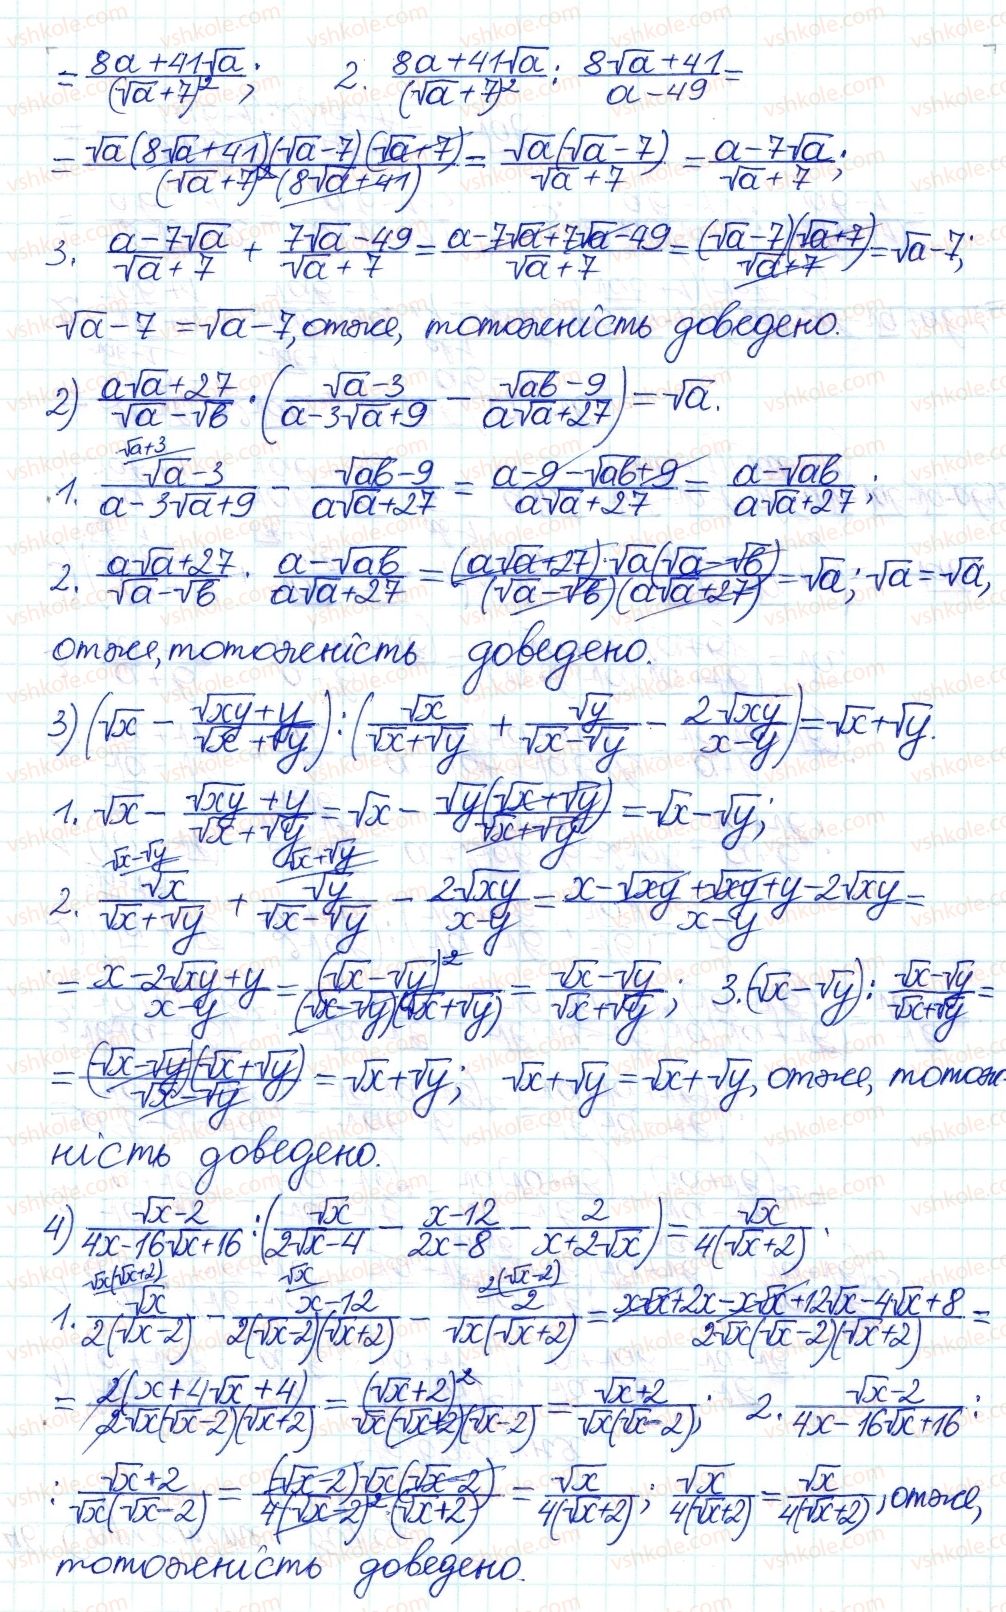 = (8a+41√a)/(√a+7)²; 2. (8a+41√a)/(√a+7)² : (8√a+41)/(a-49) =
= (√a(8√a+41)(√a-7)(√a+7))/((√a+7)²(8√a+41)) = (√a(√a-7))/(√a+7) = (a-7√a)/(√a+7);
3. (a-7√a)/(√a+7) + (7√a-49)/(√a+7) = (a-7√a+7√a-49)/(√a+7) = ((√a-7)(√a+7))/(√a+7) = √a-7;
√a-7 = √a-7, отже, тотожність доведено.
2) (a√a+27)/(√a-√b) · ((√a-3)/(a-3√a+9) - (√ab-9)/(a√a+27)) = √a.
√a+3
1. (√a-3)/(a-3√a+9) - (√ab-9)/(a√a+27) = (a-9-√ab+9)/(a√a+27) = (a-√ab)/(a√a+27);
2. (a√a+27)/(√a-√b) · (a-√ab)/(a√a+27) = ((a√a+27)·√a(√a-√b))/((√a-√b)(a√a+27)) = √a; √a=√a,
отже, тотожність доведено.
3) (√x - (√xy+y)/(√x+√y)) : (√x/(√x+√y) + √y/(√x-√y) - 2√xy/(x-y)) = √x+√y.
1. √x - (√xy+y)/(√x+√y) = √x - (√y(√x+√y))/(√x+√y) = √x-√y;
√x-√y √x+√y
2. √x/(√x+√y) + √y/(√x-√y) - 2√xy/(x-y) = (x-√xy+√xy+y-2√xy)/(x-y) =
= (x-2√xy+y)/(x-y) = (√x-√y)²/((√x-√y)(√x+√y)) = (√x-√y)/(√x+√y); 3. (√x-√y) : (√x-√y)/(√x+√y) =
= ((√x-√y)(√x+√y))/(√x-√y) = √x+√y; √x+√y = √x+√y, отже, тотож-
ність доведено.
4) (√x-2)/(4x-16√x+16) : (√x/(2√x-4) - (x-12)/(2x-8) - 2/(x+2√x)) = √x/(4(√x+2)).
√x(√x+2) √x 2(√x-2)
1. √x/(2(√x-2)) - (x-12)/(2(√x-2)(√x+2)) - 2/(√x(√x+2)) = (x√x+2x-x√x+12√x-4√x+8)/(2√x(√x-2)(√x+2)) =
= (2(x+4√x+4))/(2√x(√x-2)(√x+2)) = (√x+2)²/(√x(√x+2)(√x-2)) = (√x+2)/(√x(√x-2)); 2. (√x-2)/(4x-16√x+16) :
: (√x+2)/(√x(√x-2)) = ((√x-2)√x(√x-2))/(4(√x-2)²·(√x+2)) = √x/(4(√x+2)); √x/(4(√x+2)) = √x/(4(√x+2)), отже,
тотожність доведено.